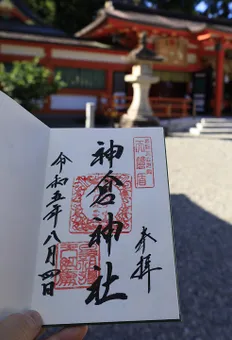 参拝
神倉神社
令和五年八月四日